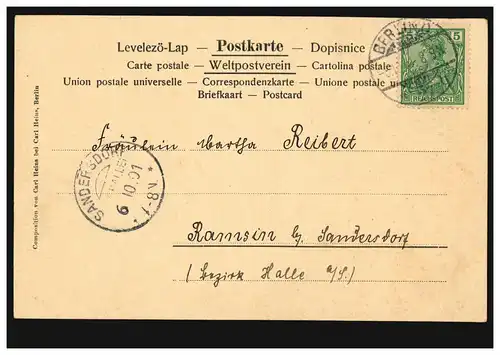 Levelező-Lap — Postkarte — Dopisnice
Carte postale — Weltpostverein — Cartolina postale
Union postale universelle — Correspondenzkarte — Unione postale
Briefkaart — Postcard
BERLIN
5
REICHSPOST
Fräulein Martha Reibert
SANDERSDORF
6 10 01
* 8-9 V.
Ramsin b/ Sandersdorf
(Bezirk Halle a/S.)
Composition von Carl Heins bei Carl Heins, Berlin